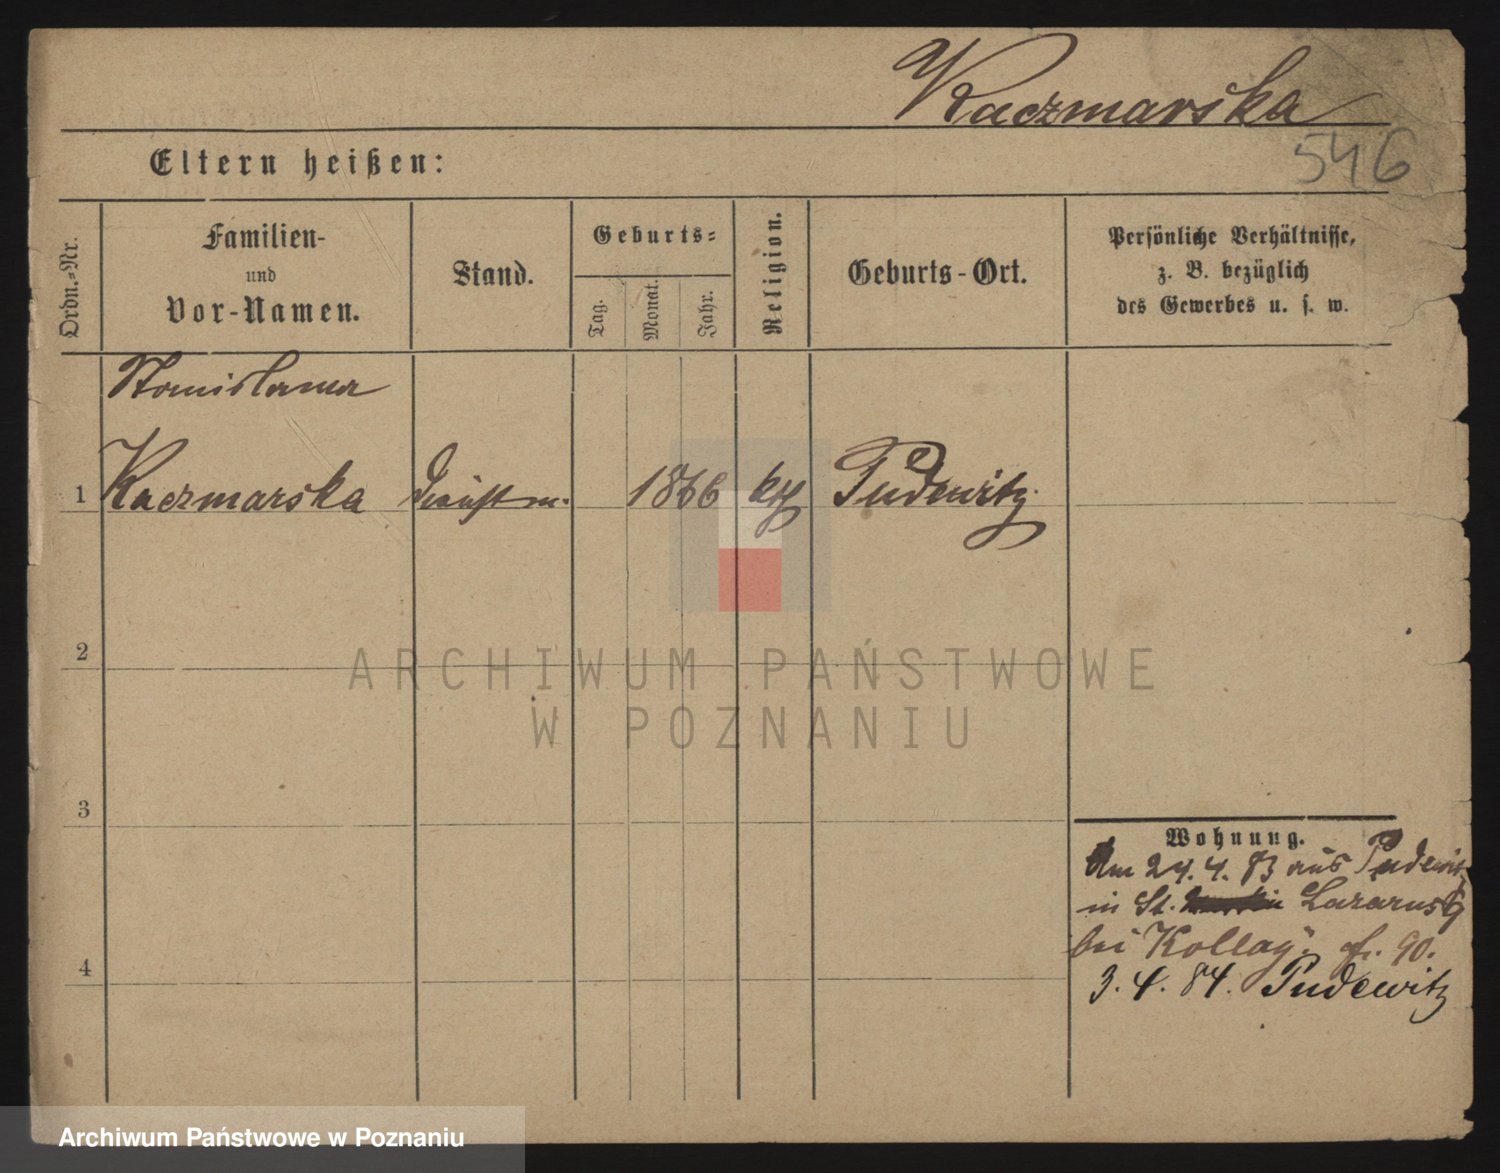 Kaczmarska
546
Eltern heißen:
Ordn.-Nr.
Familien-
und
Vor-Namen.
Stand.
Geburts-
Tag.
Monat.
Jahr.
Religion.
Geburts-Ort.
Persönliche Verhältnisse,
z. B. bezüglich
des Gewerbes u. s. w.
Stanislawa
1 Kaczmarska 1866 Pudewitz
2
3
4
Wohnung.
Am 24. 4. 83 aus Pudewitz
in St. Lazarus
bei 90.
3. 4. 84. Pudewitz
ARCHIWUM PAŃSTWOWE
W POZNANIU
Archiwum Państwowe w Poznaniu